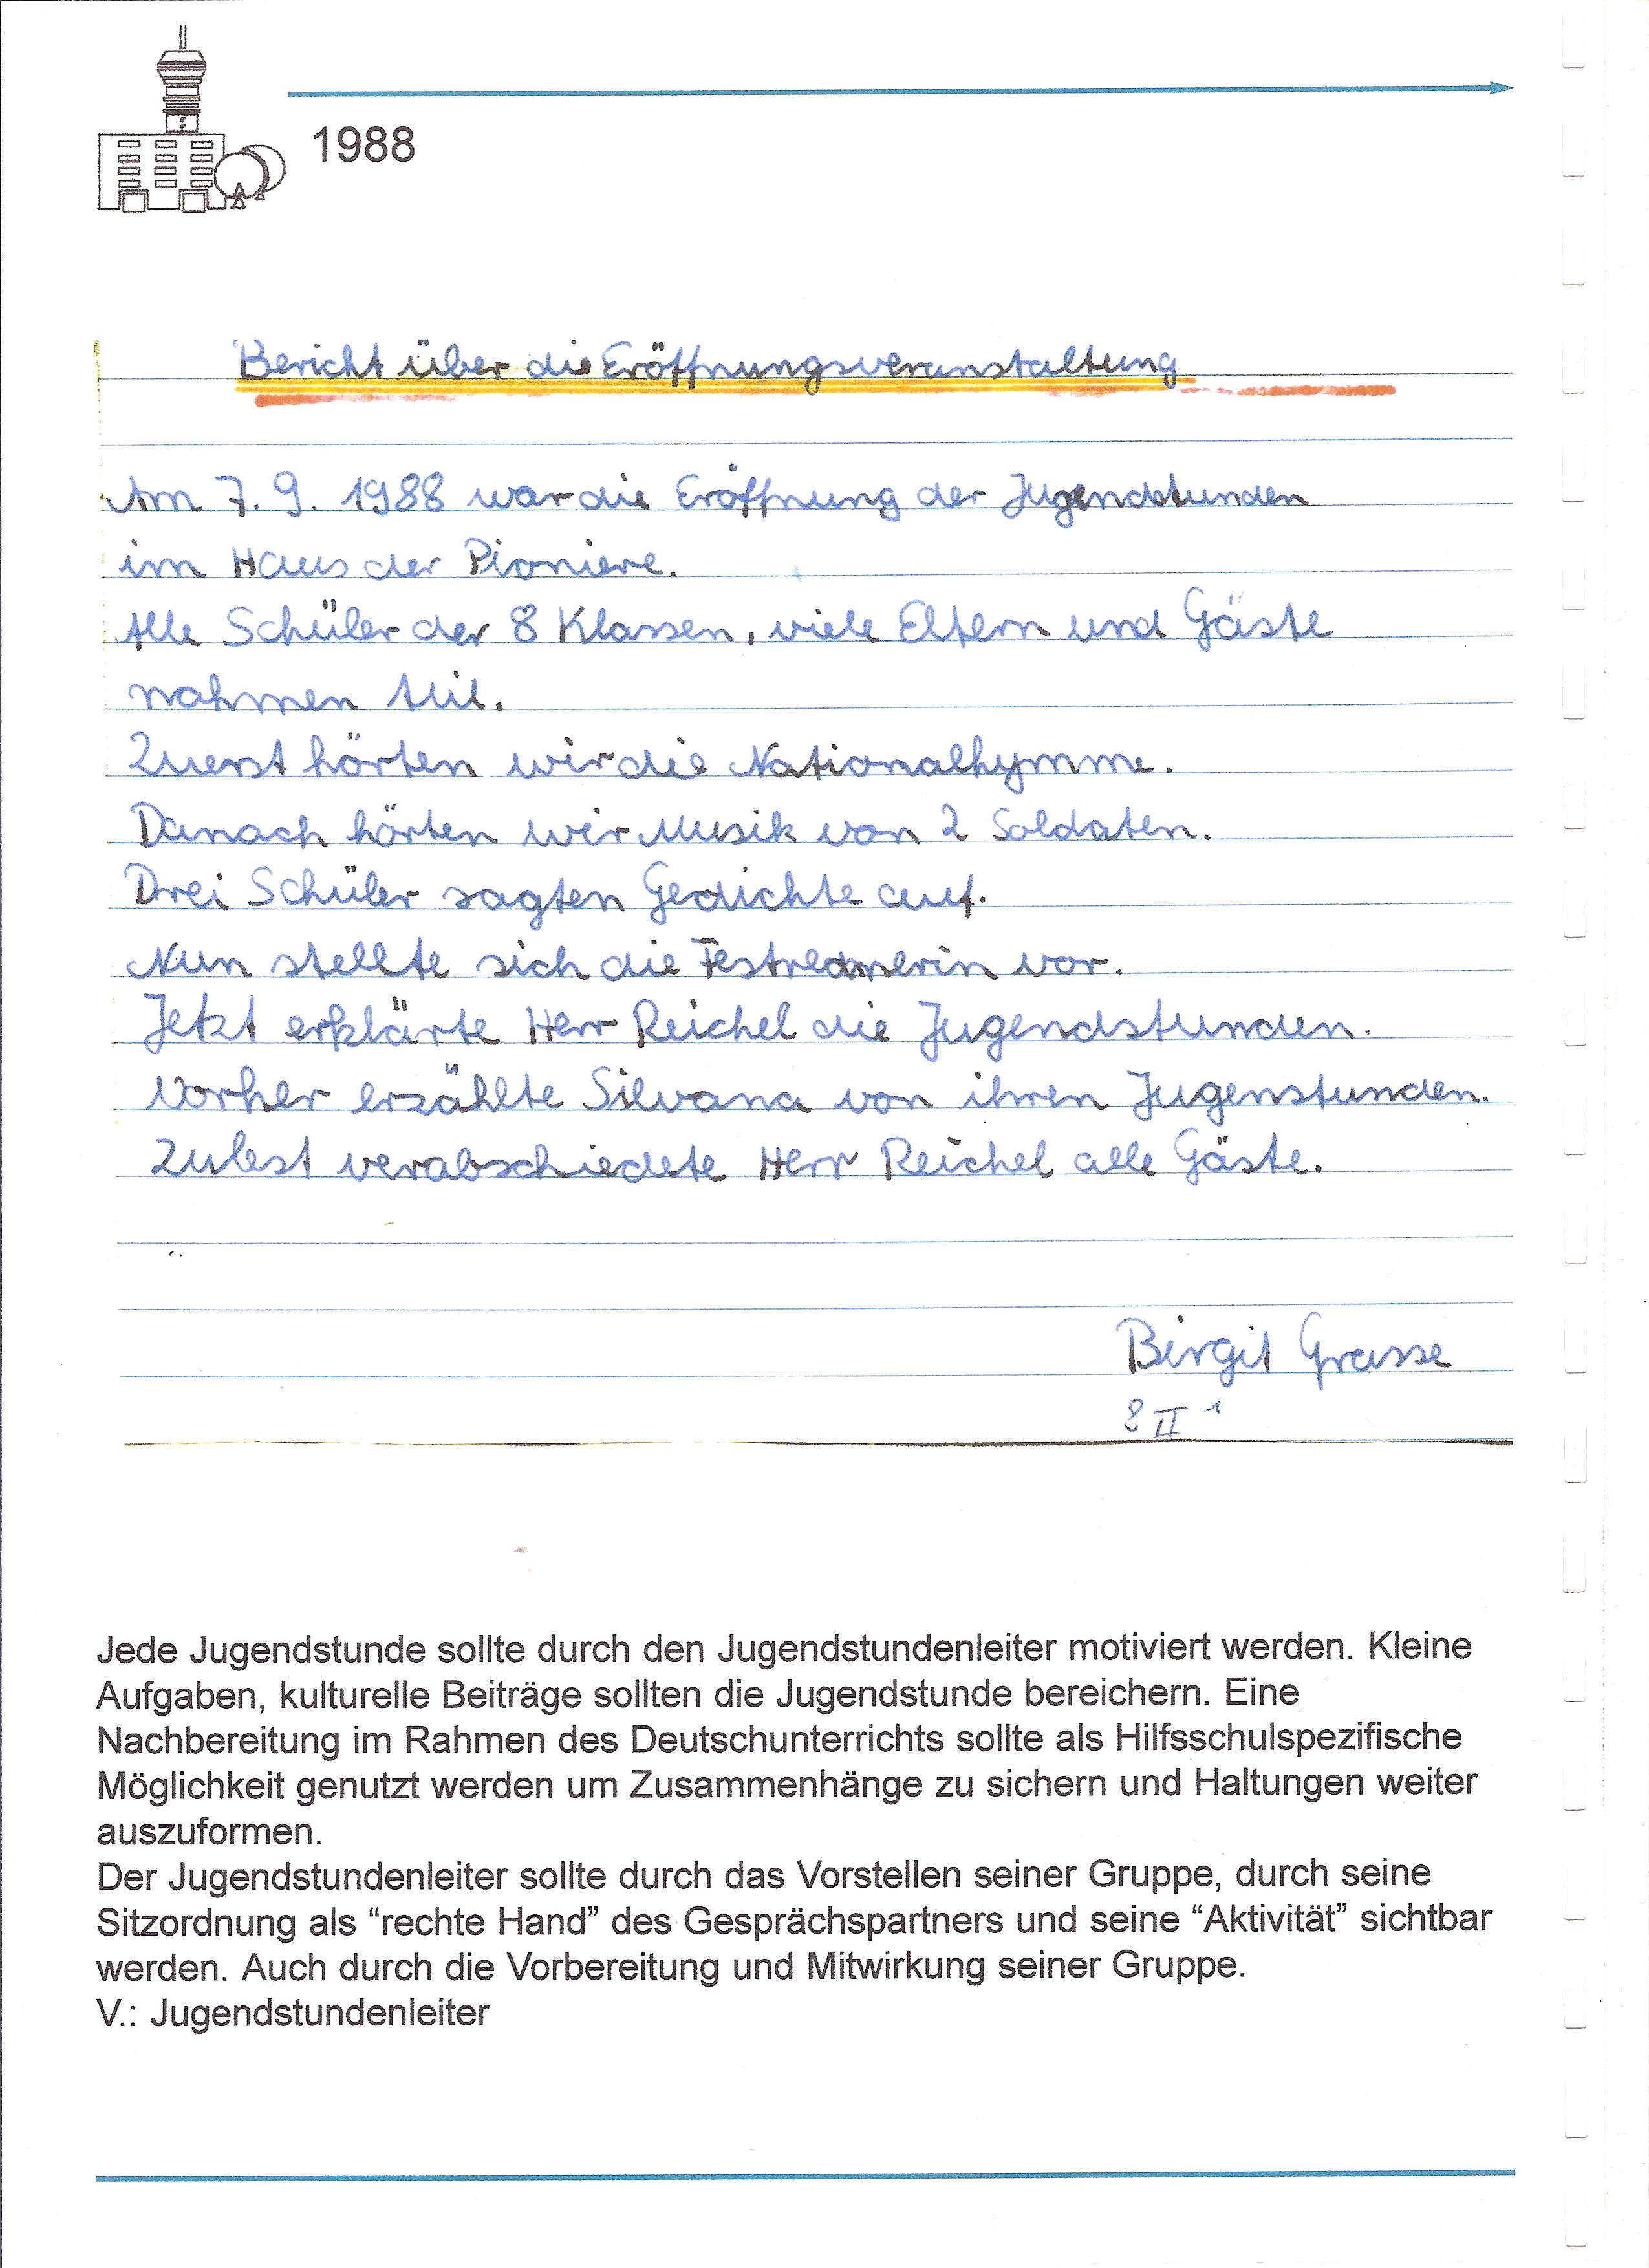 1988
Bericht über die Eröffnungsveranstaltung
Am 7. 9. 1988 war die Eröffnung der Jugendstunden
im Haus der Pioniere.
Alle Schüler der 8 Klassen, viele Eltern und Gäste
nahmen teil.
Zuerst hörten wir die Nationalhymme.
Danach hörten wir Musik von 2 Soldaten.
Drei Schüler sagten Gedichte auf.
Nun stellte sich die Festrednerin vor.
Jetzt erklärte Herr Reichel die Jugendstunden.
Vorher erzählte Silvana von ihren Jugenstunden.
Zulest verabschiedete Herr Reichel alle Gäste.
Birgit Grasse
8 II
Jede Jugendstunde sollte durch den Jugendstundenleiter motiviert werden. Kleine
Aufgaben, kulturelle Beiträge sollten die Jugendstunde bereichern. Eine
Nachbereitung im Rahmen des Deutschunterrichts sollte als Hilfsschulspezifische
Möglichkeit genutzt werden um Zusammenhänge zu sichern und Haltungen weiter
auszuformen.
Der Jugendstundenleiter sollte durch das Vorstellen seiner Gruppe, durch seine
Sitzordnung als “rechte Hand” des Gesprächspartners und seine “Aktivität” sichtbar
werden. Auch durch die Vorbereitung und Mitwirkung seiner Gruppe.
V.: Jugendstundenleiter